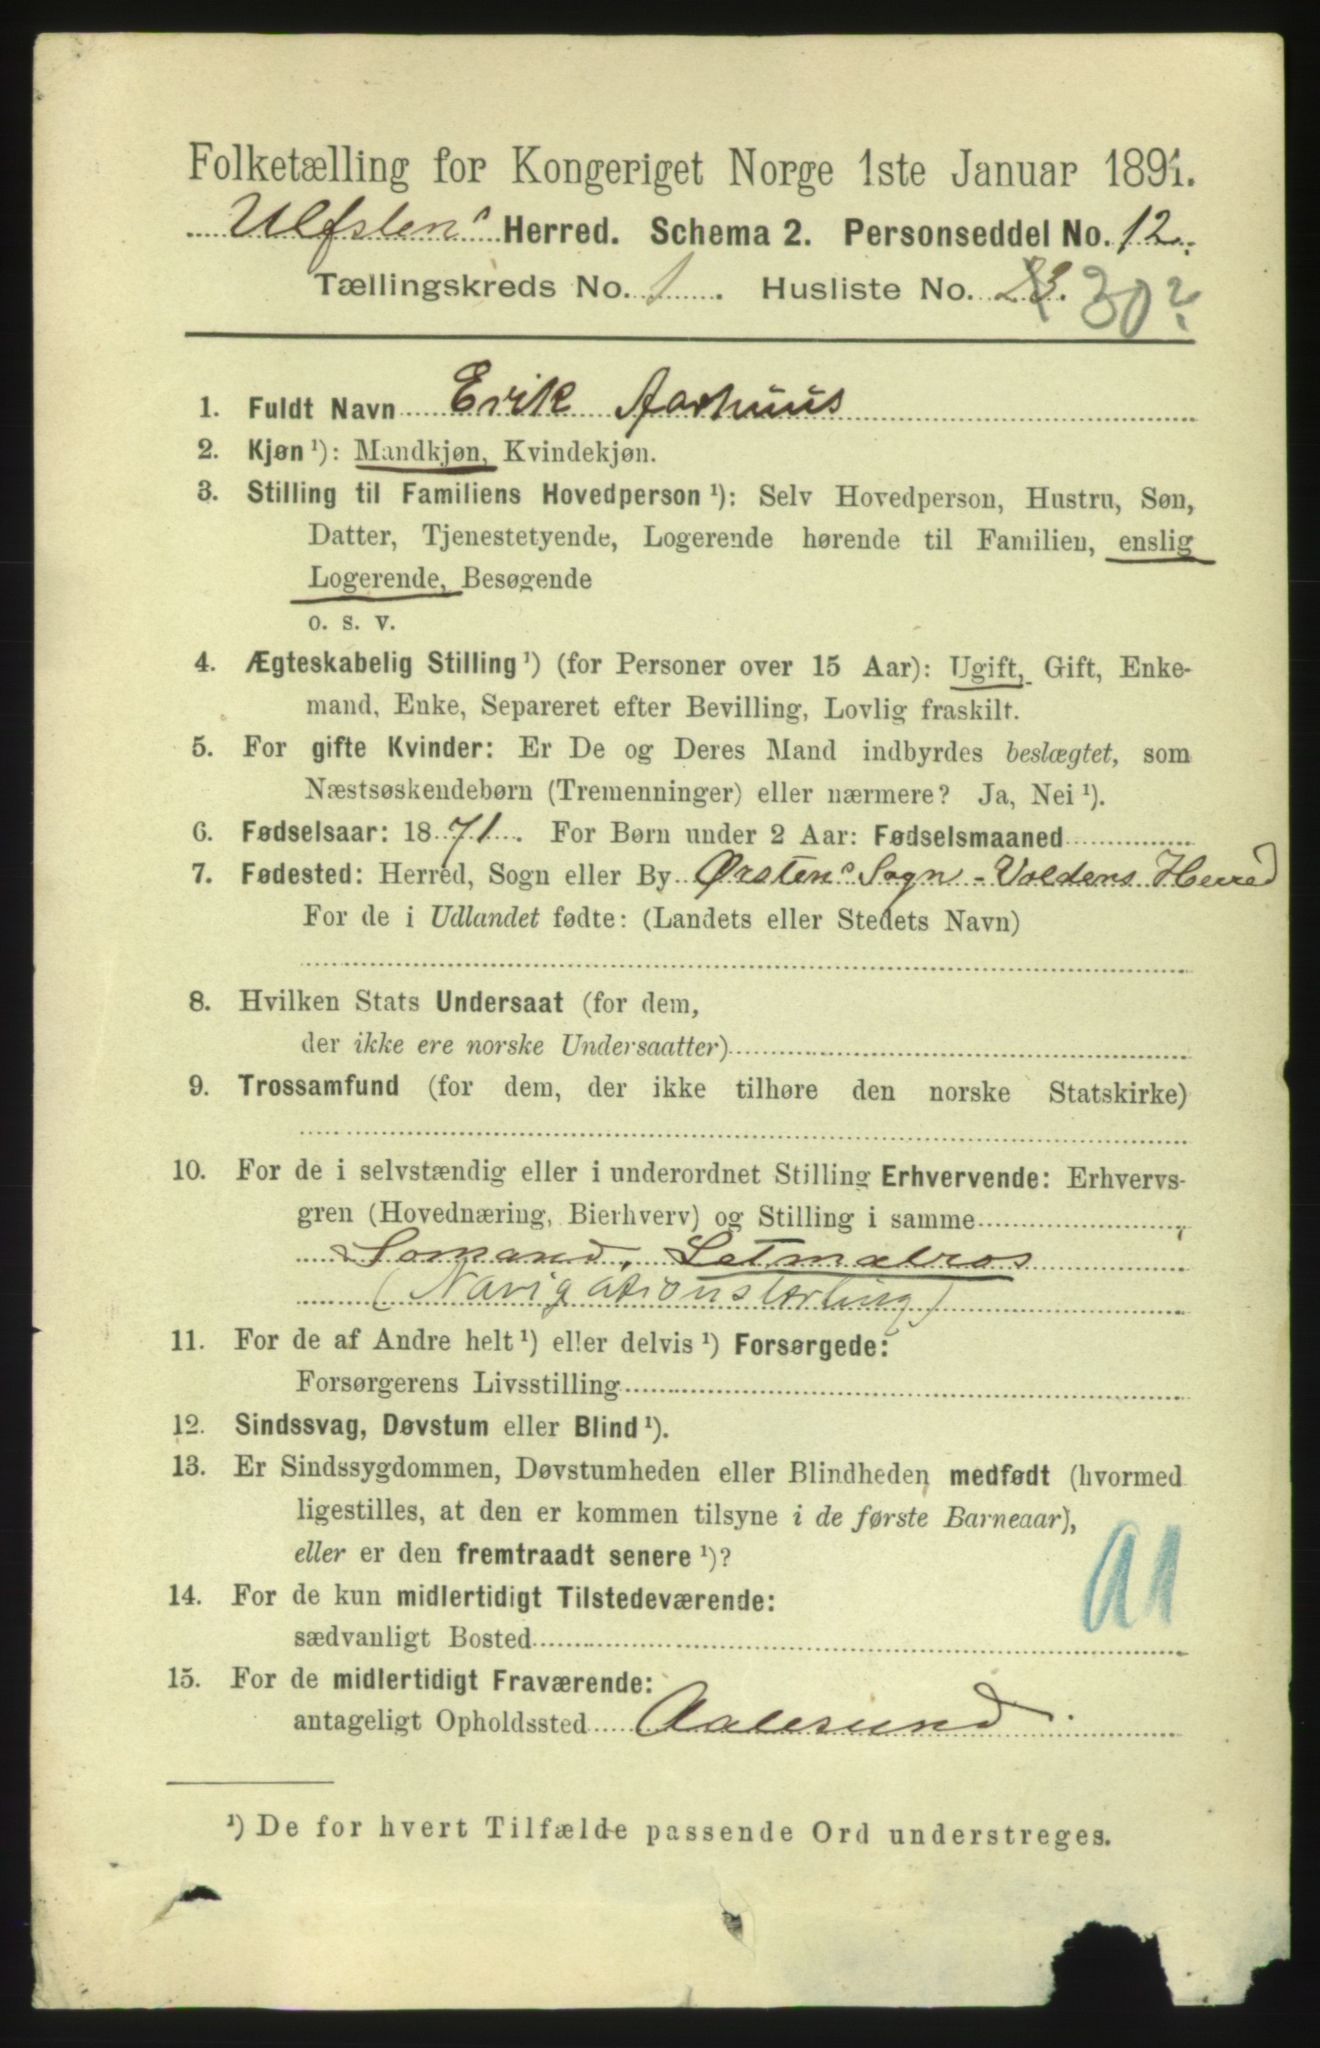 Folketælling for Kongeriget Norge 1ste Januar 1891.
Ulfsten's Herred. Schema 2. Personseddel No. 12.
Tællingskreds No. 1. Husliste No. 23. 30?
1. Fuldt Navn Erik Aarhuus
2. Kjøn ¹): Mandkjøn, Kvindekjøn.
3. Stilling til Familiens Hovedperson ¹): Selv Hovedperson, Hustru, Søn,
Datter, Tjenestetyende, Logerende hørende til Familien, enslig
Logerende, Besøgende
o. s. v.
4. Ægteskabelig Stilling ¹) (for Personer over 15 Aar): Ugift, Gift, Enke-
mand, Enke, Separeret efter Bevilling, Lovlig fraskilt.
5. For gifte Kvinder: Er De og Deres Mand indbyrdes beslægtet, som
Næstsøskendebørn (Tremenninger) eller nærmere? Ja, Nei ¹).
6. Fødselsaar: 1871. For Børn under 2 Aar: Fødselsmaaned
7. Fødested: Herred, Sogn eller By Ørsten's Sogn - Voldens Herred
For de i Udlandet fødte: (Landets eller Stedets Navn)
8. Hvilken Stats Undersaat (for dem,
der ikke ere norske Undersaatter)
9. Trossamfund (for dem, der ikke tilhøre den norske Statskirke)
10. For de i selvstændig eller i underordnet Stilling Erhvervende: Erhvervs-
gren (Hovednæring, Bierhverv) og Stilling i samme
Sømand, Letmatros
(Navigationslærling)
11. For de af Andre helt ¹) eller delvis ¹) Forsørgede:
Forsørgerens Livsstilling
12. Sindssvag, Døvstum eller Blind ¹).
13. Er Sindssygdommen, Døvstumheden eller Blindheden medfødt (hvormed
ligestilles, at den er kommen tilsyne i de første Barneaar),
eller er den fremtraadt senere ¹)?
14. For de kun midlertidigt Tilstedeværende:
sædvanligt Bosted
15. For de midlertidigt Fraværende:
antageligt Opholdssted Aalesund
¹) De for hvert Tilfælde passende Ord understreges.